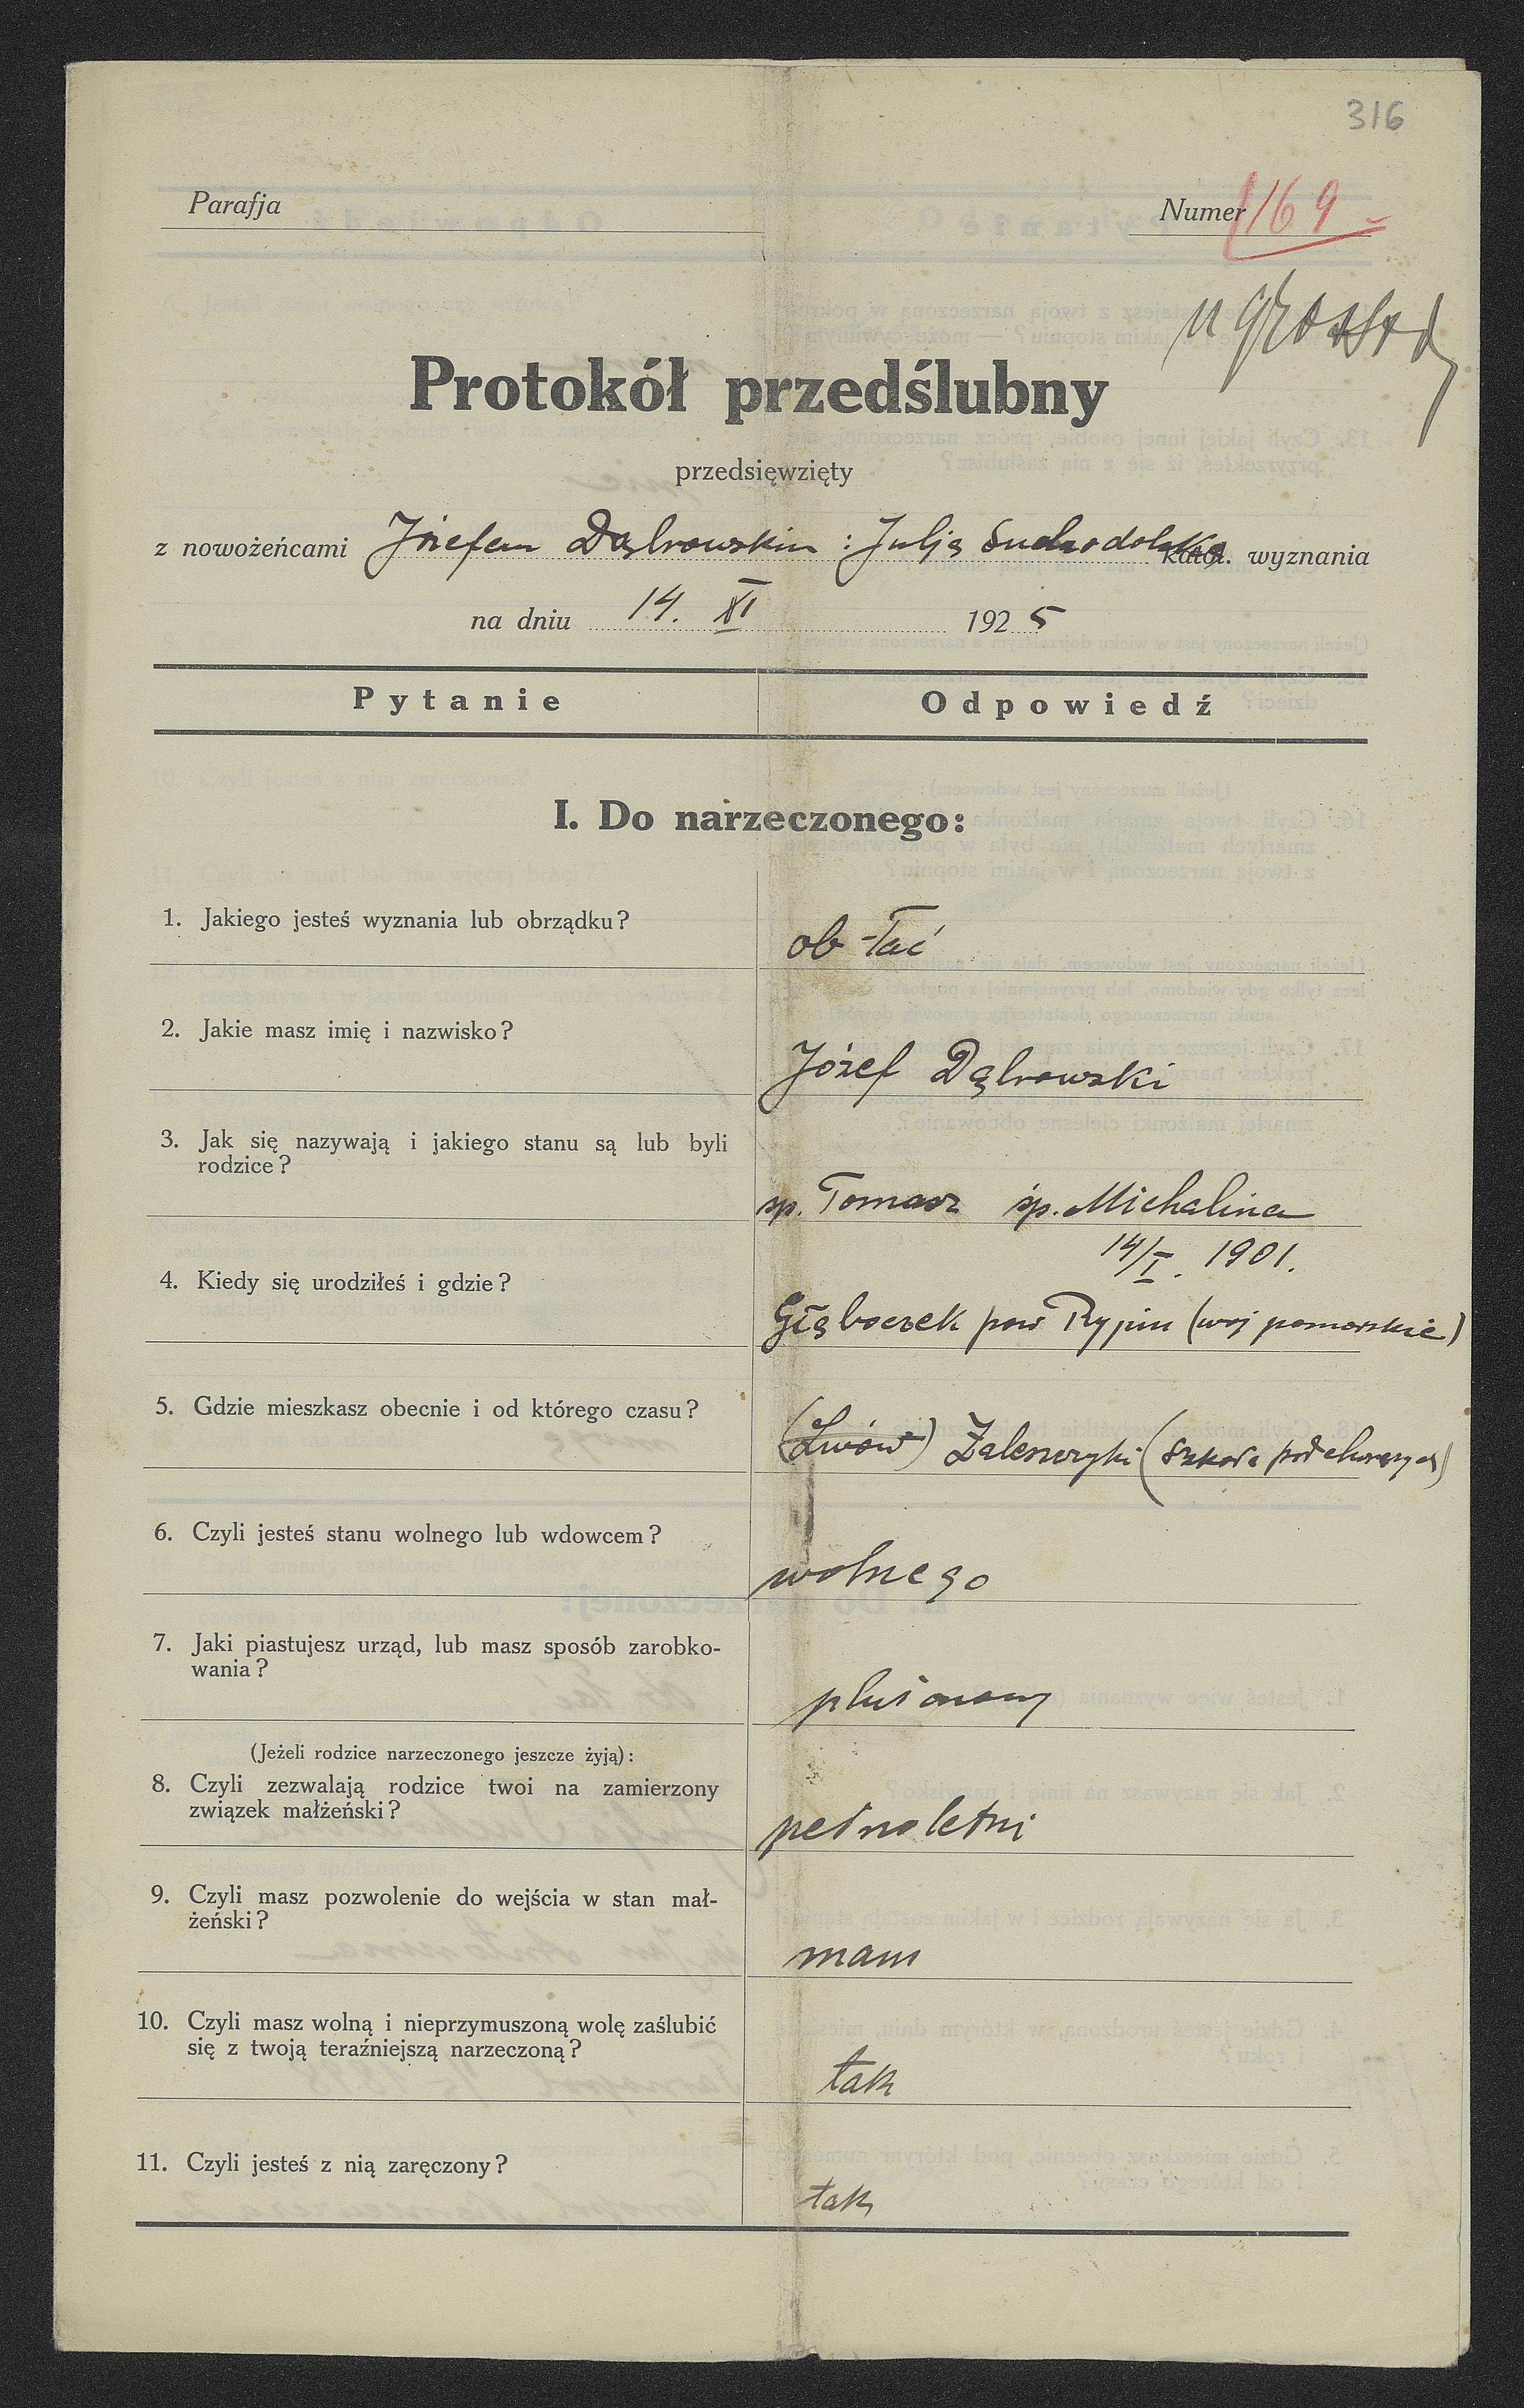 316
Parafja
Numer 169
Protokół przedślubny
przedsięwzięty
z nowożeńcami Józefem Dąbrowskim i Julją Suchodolską katol. wyznania
na dniu 14. XI 1925
Pytanie Odpowiedź
I. Do narzeczonego:
1. Jakiego jesteś wyznania lub obrządku?
ob łać
2. Jakie masz imię i nazwisko?
Józef Dąbrowski
3. Jak się nazywają i jakiego stanu są lub byli
rodzice?
śp. Tomasz śp. Michalina
14/I. 1901.
4. Kiedy się urodziłeś i gdzie?
Głęboczek pow Rypin (woj pomorskie)
5. Gdzie mieszkasz obecnie i od którego czasu?
(Lwów) Zaleszczyki (szkoła podchorążych)
6. Czyli jesteś stanu wolnego lub wdowcem?
wolnego
7. Jaki piastujesz urząd, lub masz sposób zarobko-
wania?
plutonowy
(Jeżeli rodzice narzeczonego jeszcze żyją):
8. Czyli zezwalają rodzice twoi na zamierzony
związek małżeński?
pełnoletni
9. Czyli masz pozwolenie do wejścia w stan mał-
żeński?
mam
10. Czyli masz wolną i nieprzymuszoną wolę zaślubić
się z twoją teraźniejszą narzeczoną?
tak
11. Czyli jesteś z nią zaręczony?
tak